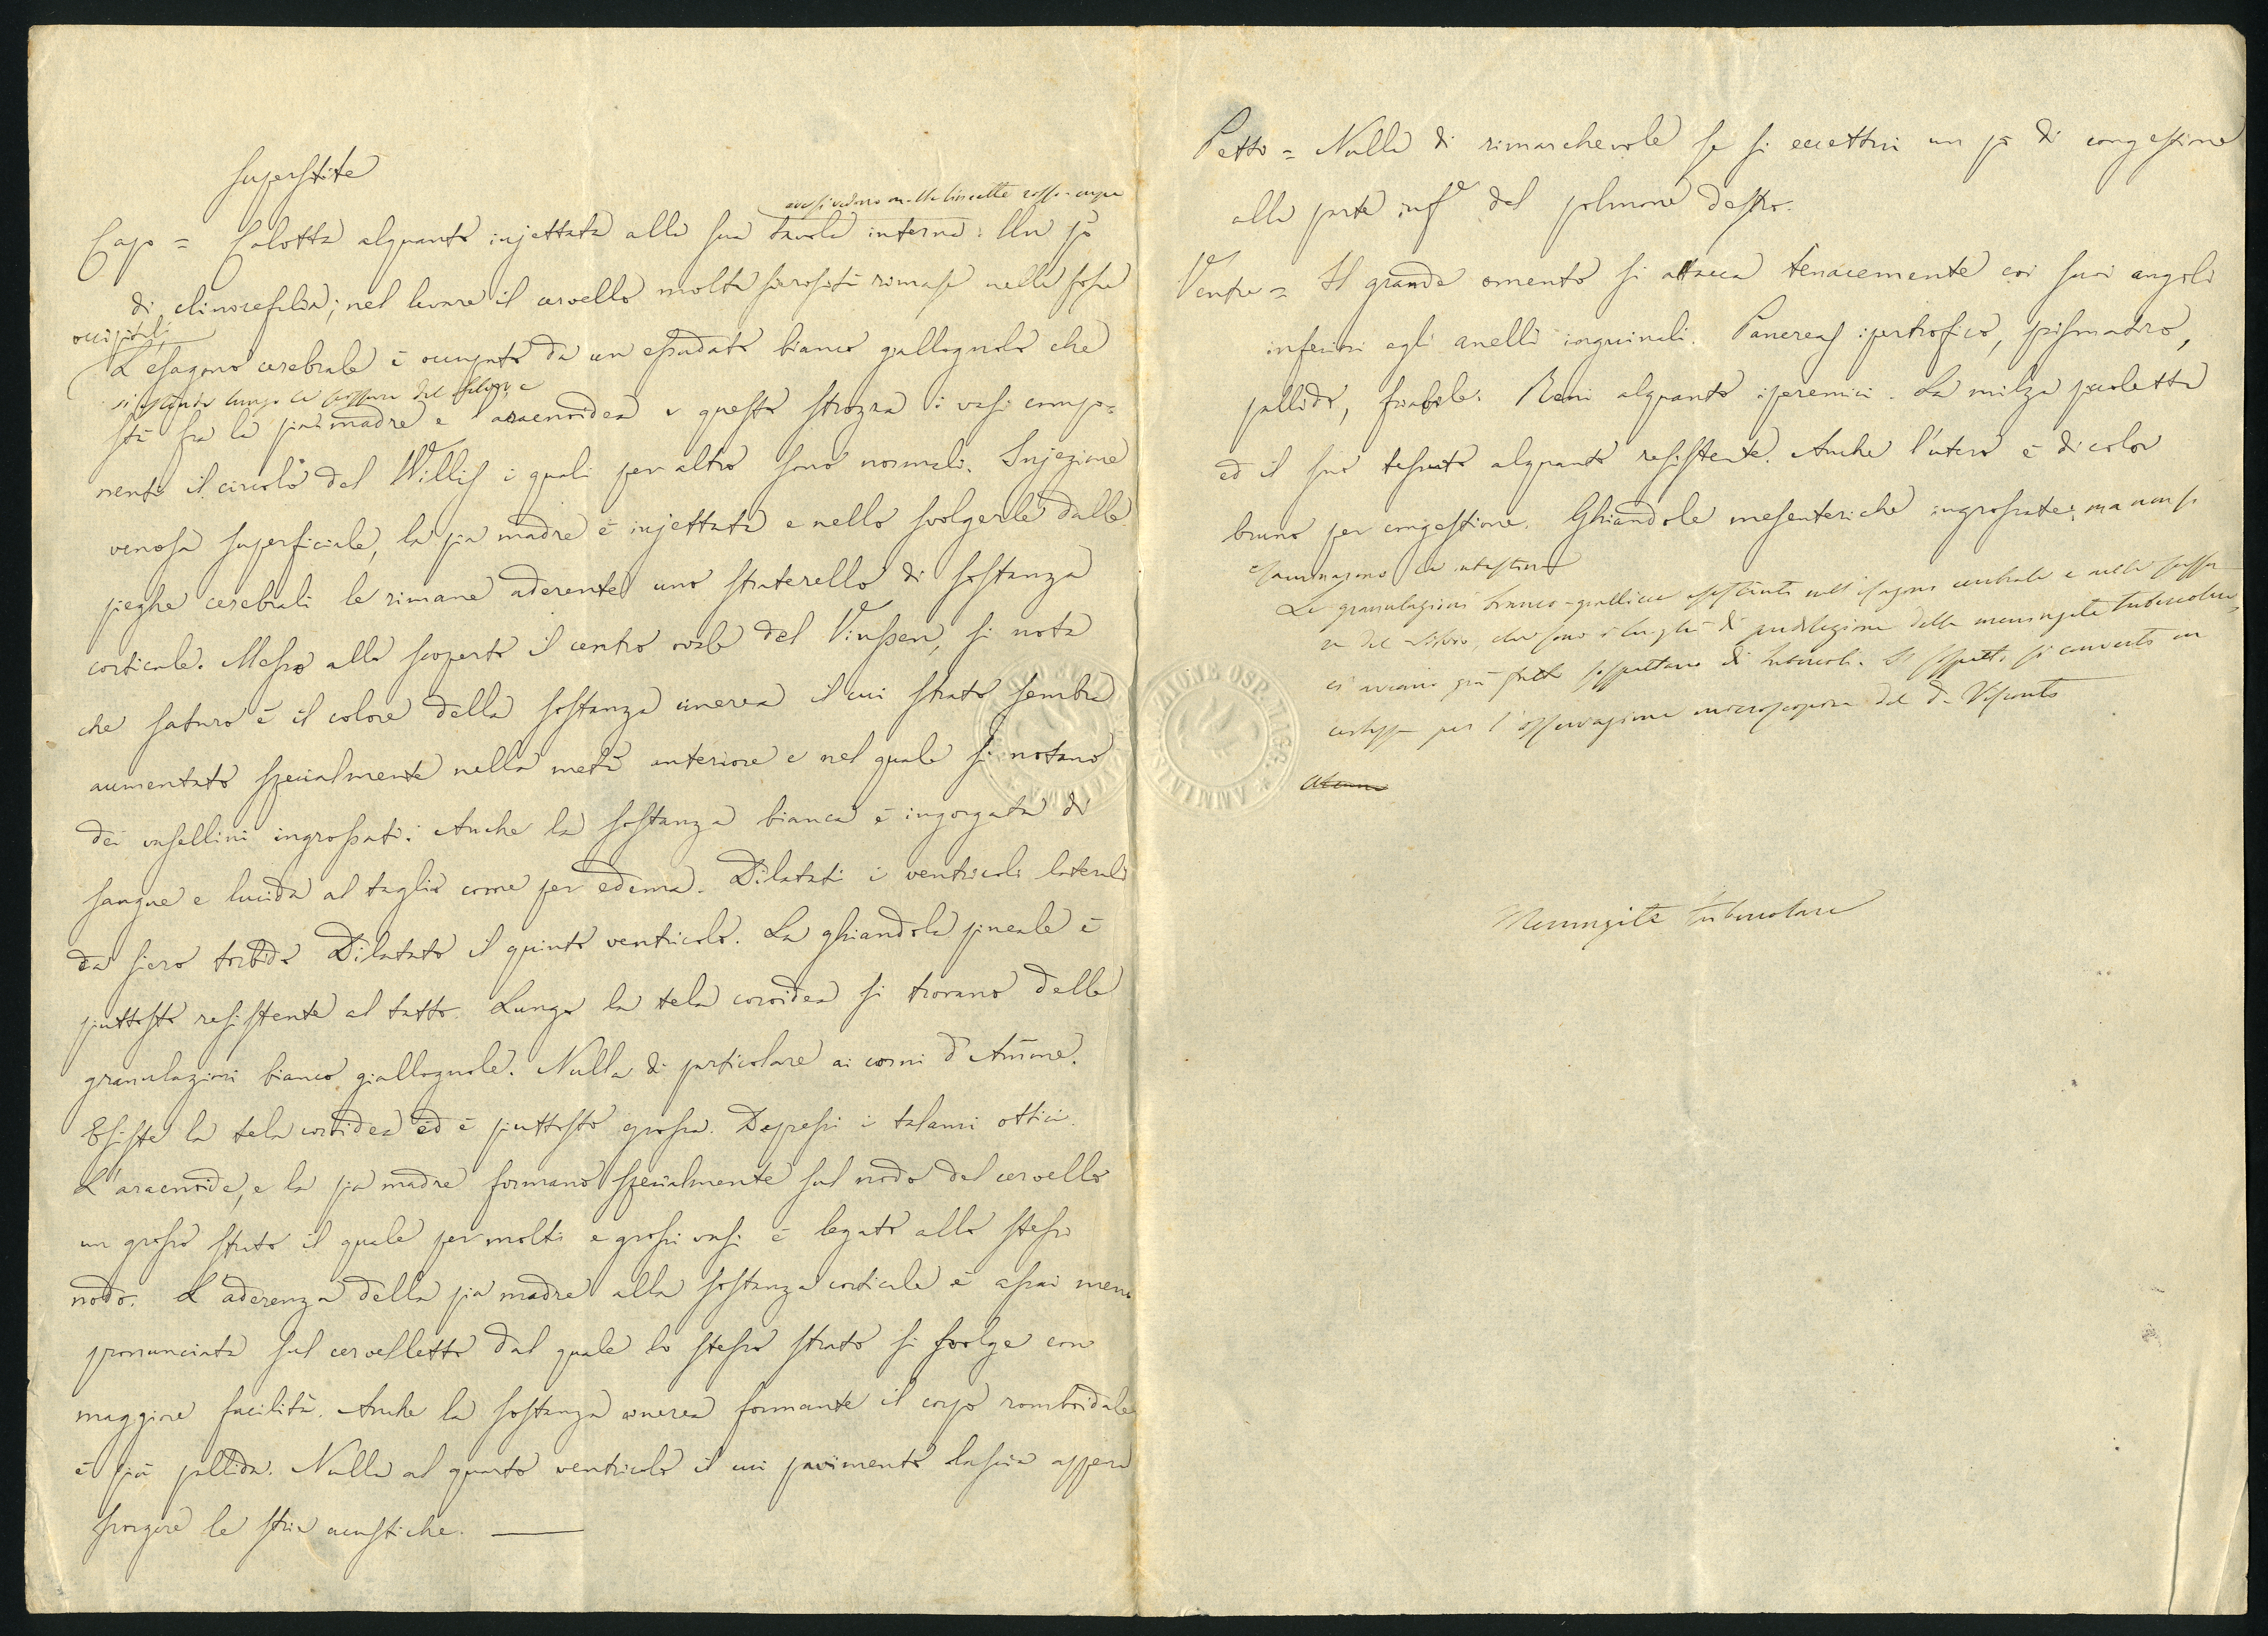 Superstite
ove si vedono molte linee rosso-cupe
Capo = Calotta alquanto injettata alla sua tavola interna. Un pò
di clinocefalia; nel levare il cervello molta sierosità rimase nelle fosse
occipitali
L'esagono cerebrale è occupato da un essudato bianco giallognolo che
si estende lungo la scissura del Silvio, e
stà fra la pia madre e l'aracnoidea e questo strozza i vasi compo-
nenti il circolo del Willis i quali per altro sono normali. Injezione
venosa superficiale, la pia madre è injettata e nello svolgerle dalle
pieghe cerebrali le rimane aderente uno straterello di sostanza
corticale. Messo allo scoperto il centro ovale del Vieussen, si nota
che saturo è il colore della sostanza cinerea il cui strato sembra
aumentato specialmente nella metà anteriore e nel quale si notano
dei vasellini ingrossati. Anche la sostanza bianca è ingorgata di
sangue e lucida al taglio come per edema. Dilatati i ventricoli laterali
da siero torbido Dilatato il quinto ventricolo. La ghiandola pineale è
piuttosto resistente al tatto. Lungo la tela coroidea si trovano delle
granulazioni bianco giallognole. Nulla di particolare ai corni d'Amone.
Esiste la tela coroidea ed è piuttosto grossa. Depressi i talami ottici.
L'aracnoide, e la pia madre formano specialmente sul nodo del cervello
un grosso strato il quale per molti e grossi vasi è legato allo stesso
nodo. L'aderenza della pia madre alla sostanza corticale è assai meno
pronunciata sul cervelletto dal quale lo stesso strato si svolge con
maggiore facilità. Anche la sostanza cinerea formante il corpo romboidale
è più pallida. Nulla al quarto ventricolo il cui pavimento lascia appena
scorgere le strie acustiche.
Petto = Nulla di rimarchevole se si eccettui un pò di congestione
alla parte infe del polmone destro.
Ventre = Il grande omento si attacca tenacemente coi suoi angoli
inferiori agli anelli inguinali. Pancreas ipertrofico,
pallido, friabile. Reni alquanto iperemici. La milza piccoletta
ed il suo tessuto alquanto resistente. Anche l'utero è di color
bruno per congestione. Ghiandole mesenteriche ingrossate; ma non si
esaminarono le intestina
Le granulazioni bianco-giallicce esistenti nell'esagono cerebrale e nella scissu-
ra del Silvio, che sono i luoghi di predilezione della meningite tubercolare,
ci avevano già fatto sospettare di tubercoli. Il sospetto si convertì in
certezza per l'osservazione microscopica del Dr Visconti
Meningite tubercolare
AMMINISTRAZIONE OSP. MAGG.